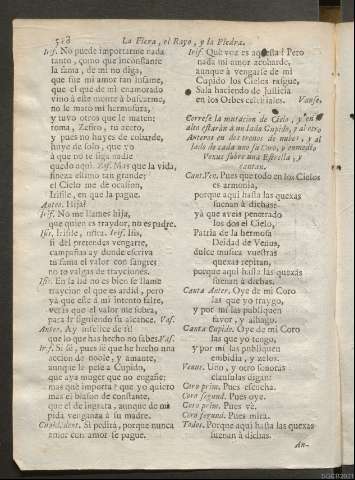 518 La Fiera, el Rayo, y la Piedra.
Irif. No puede importarme nada
tanto, como que inconstante
la fama, de mi no diga,
que fue mi amor tan infame,
que el que de mi enamorado
vino à este monte à buscarme,
no le mato mi hermosura,
y tuvo otros que le maten:
toma, Zefiro, tu acero,
y pues no huyes de cobarde,
huye de solo, que yo
à que no te siga nadie
quedo aqui. Zef. Mas que la vida,
fineza estimo tan grande;
el Cielo me de ocasion,
Irifile, en que la pague.
Anter. Hija?
Irif. No me llames hija,
que quien es traydor, no es padre.
Ifis. Irifile,
si del pretendes vengarte,
campañas ay donde escriva
tu fama el valor con sangre;
no te valgas de trayciones.
Ifis. En la lid no es bien se llame
traycion el que es ardid, pero
yà que este à mi intento falte,
veràs que el valor me sobra,
para ir siguiendo su alcance. Vas.
Anter. Ay infelice de ti!
que lo que has hecho no sabes. Vas.
Irif. Si sè, pues sè que he hecho una
accion de noble, y amante,
aunque le pese à Cupido,
que aya muger que no engañe;
mas què importa? que yo quiero
mas el blason de constante,
que el de ingrata, aunque de mi
pida venganza à su madre.
Cup. dent. Si pedirà, porque nunca
amor con amor se pague.
Irif. Què voz es aquesta? Pero
nada mi amor acobarde,
aunque à vengarse de mi
Cupido los Cielos rasgue,
Sala haciendo de Justicia
en los Orbes celestiales. Vanse.
Correse la mutacion de Cielo, y en
alto estaràn à un lado Cupido, y al otro
Anteros en dos tronos de nubes, y al
lado de cada uno su Coro, y enmedio
Venus sobre una Estrella, y
cantan.
Cant. Ven. Pues que todo en los Cielos
es armonia,
porque aqui hasta las quexas
suenan à dichas:
yà que aveis penetrado
los dos el Cielo,
Patria de la hermosa
Deidad de Venus,
dulce musica vuestras
quexas repitan,
porque aqui hasta las quexas
suenan à dichas.
Canta Anter. Oye de mi Coro
las que yo traygo,
y por mi las publiquen
favor, y alhago.
Canta Cupido. Oye de mi Coro
las que yo tengo,
y por mi las publiquen
embidia, y zelos.
Venus. Uno, y otro sonoras
clausulas digan:
Coro prim. Pues escucha.
Coro segund. Pues oye.
Coro prim. Pues vè.
Coro segund. Pues mira.
Todos. Porque aqui hasta las quexas
suenan à dichas.
An-